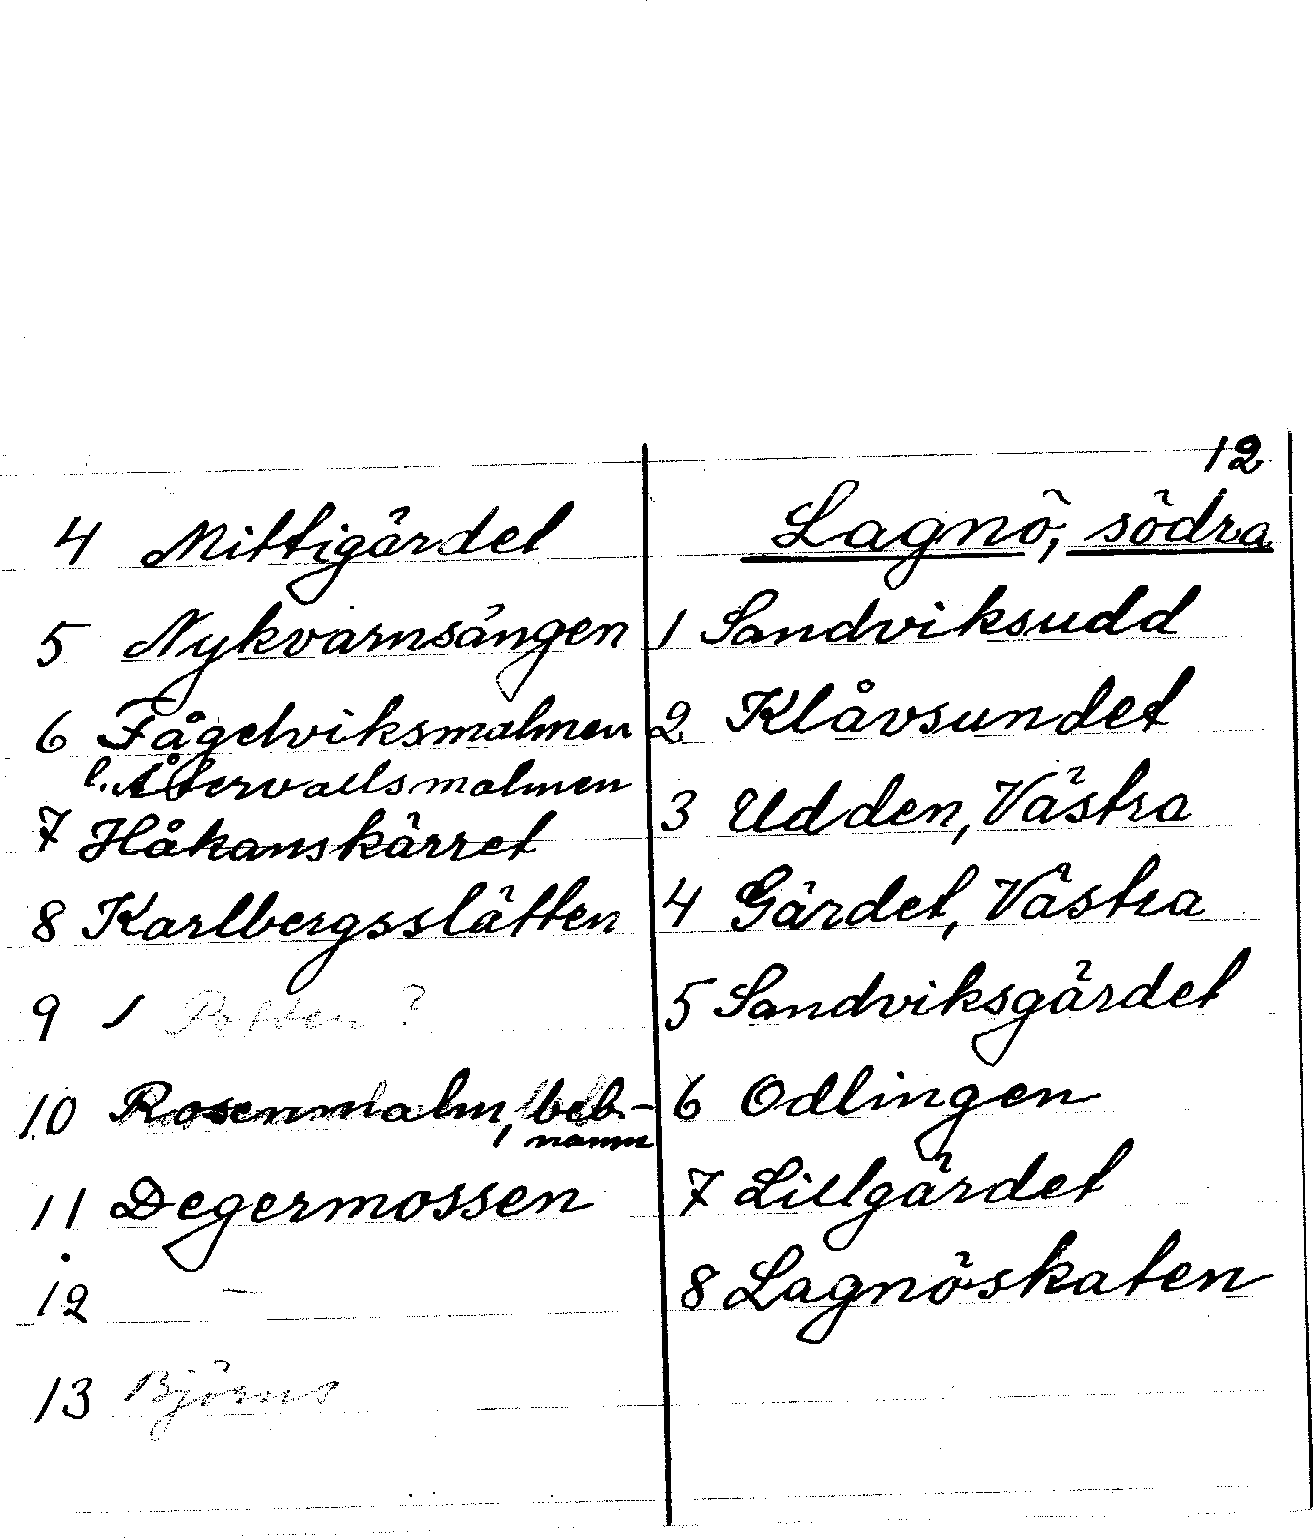 4 Mittigärdet
5 Nykvarnsängen
6 Fågelviksmalmen
l. Återvallsmalmen
7 Håkanskärret
8 Karlbergsslätten
9 ?
10 Rosenmalm, beb.-
namn
11 Degermossen
12 —
13 Björns
12
Lagnö, södra
1 Sandviksudd
2 Klåvsundet
3 Udden, Västra
4 Gärdet, Västra
5 Sandviksgärdet
6 Odlingen
7 Lillgärdet
8 Lagnöskaten